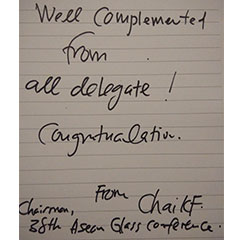 Well Complemented
from
all delegate !
Congratualation.
From ChaikF.
Chairman,
38th Asean Glass Conference.